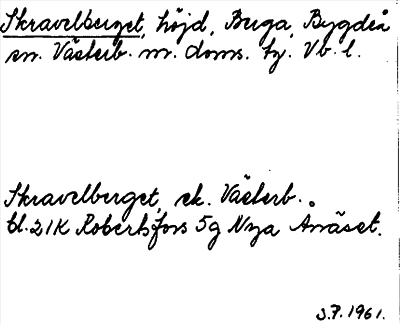 Skravelberget, höjd, Buga, Bygdeå
sn. Västerb. m. doms. tg. Vb. l.
Skravelberget, ek. Västerb.
bl. 21K Robertsfors 5g Nya Ånäset.
3.7.1961.